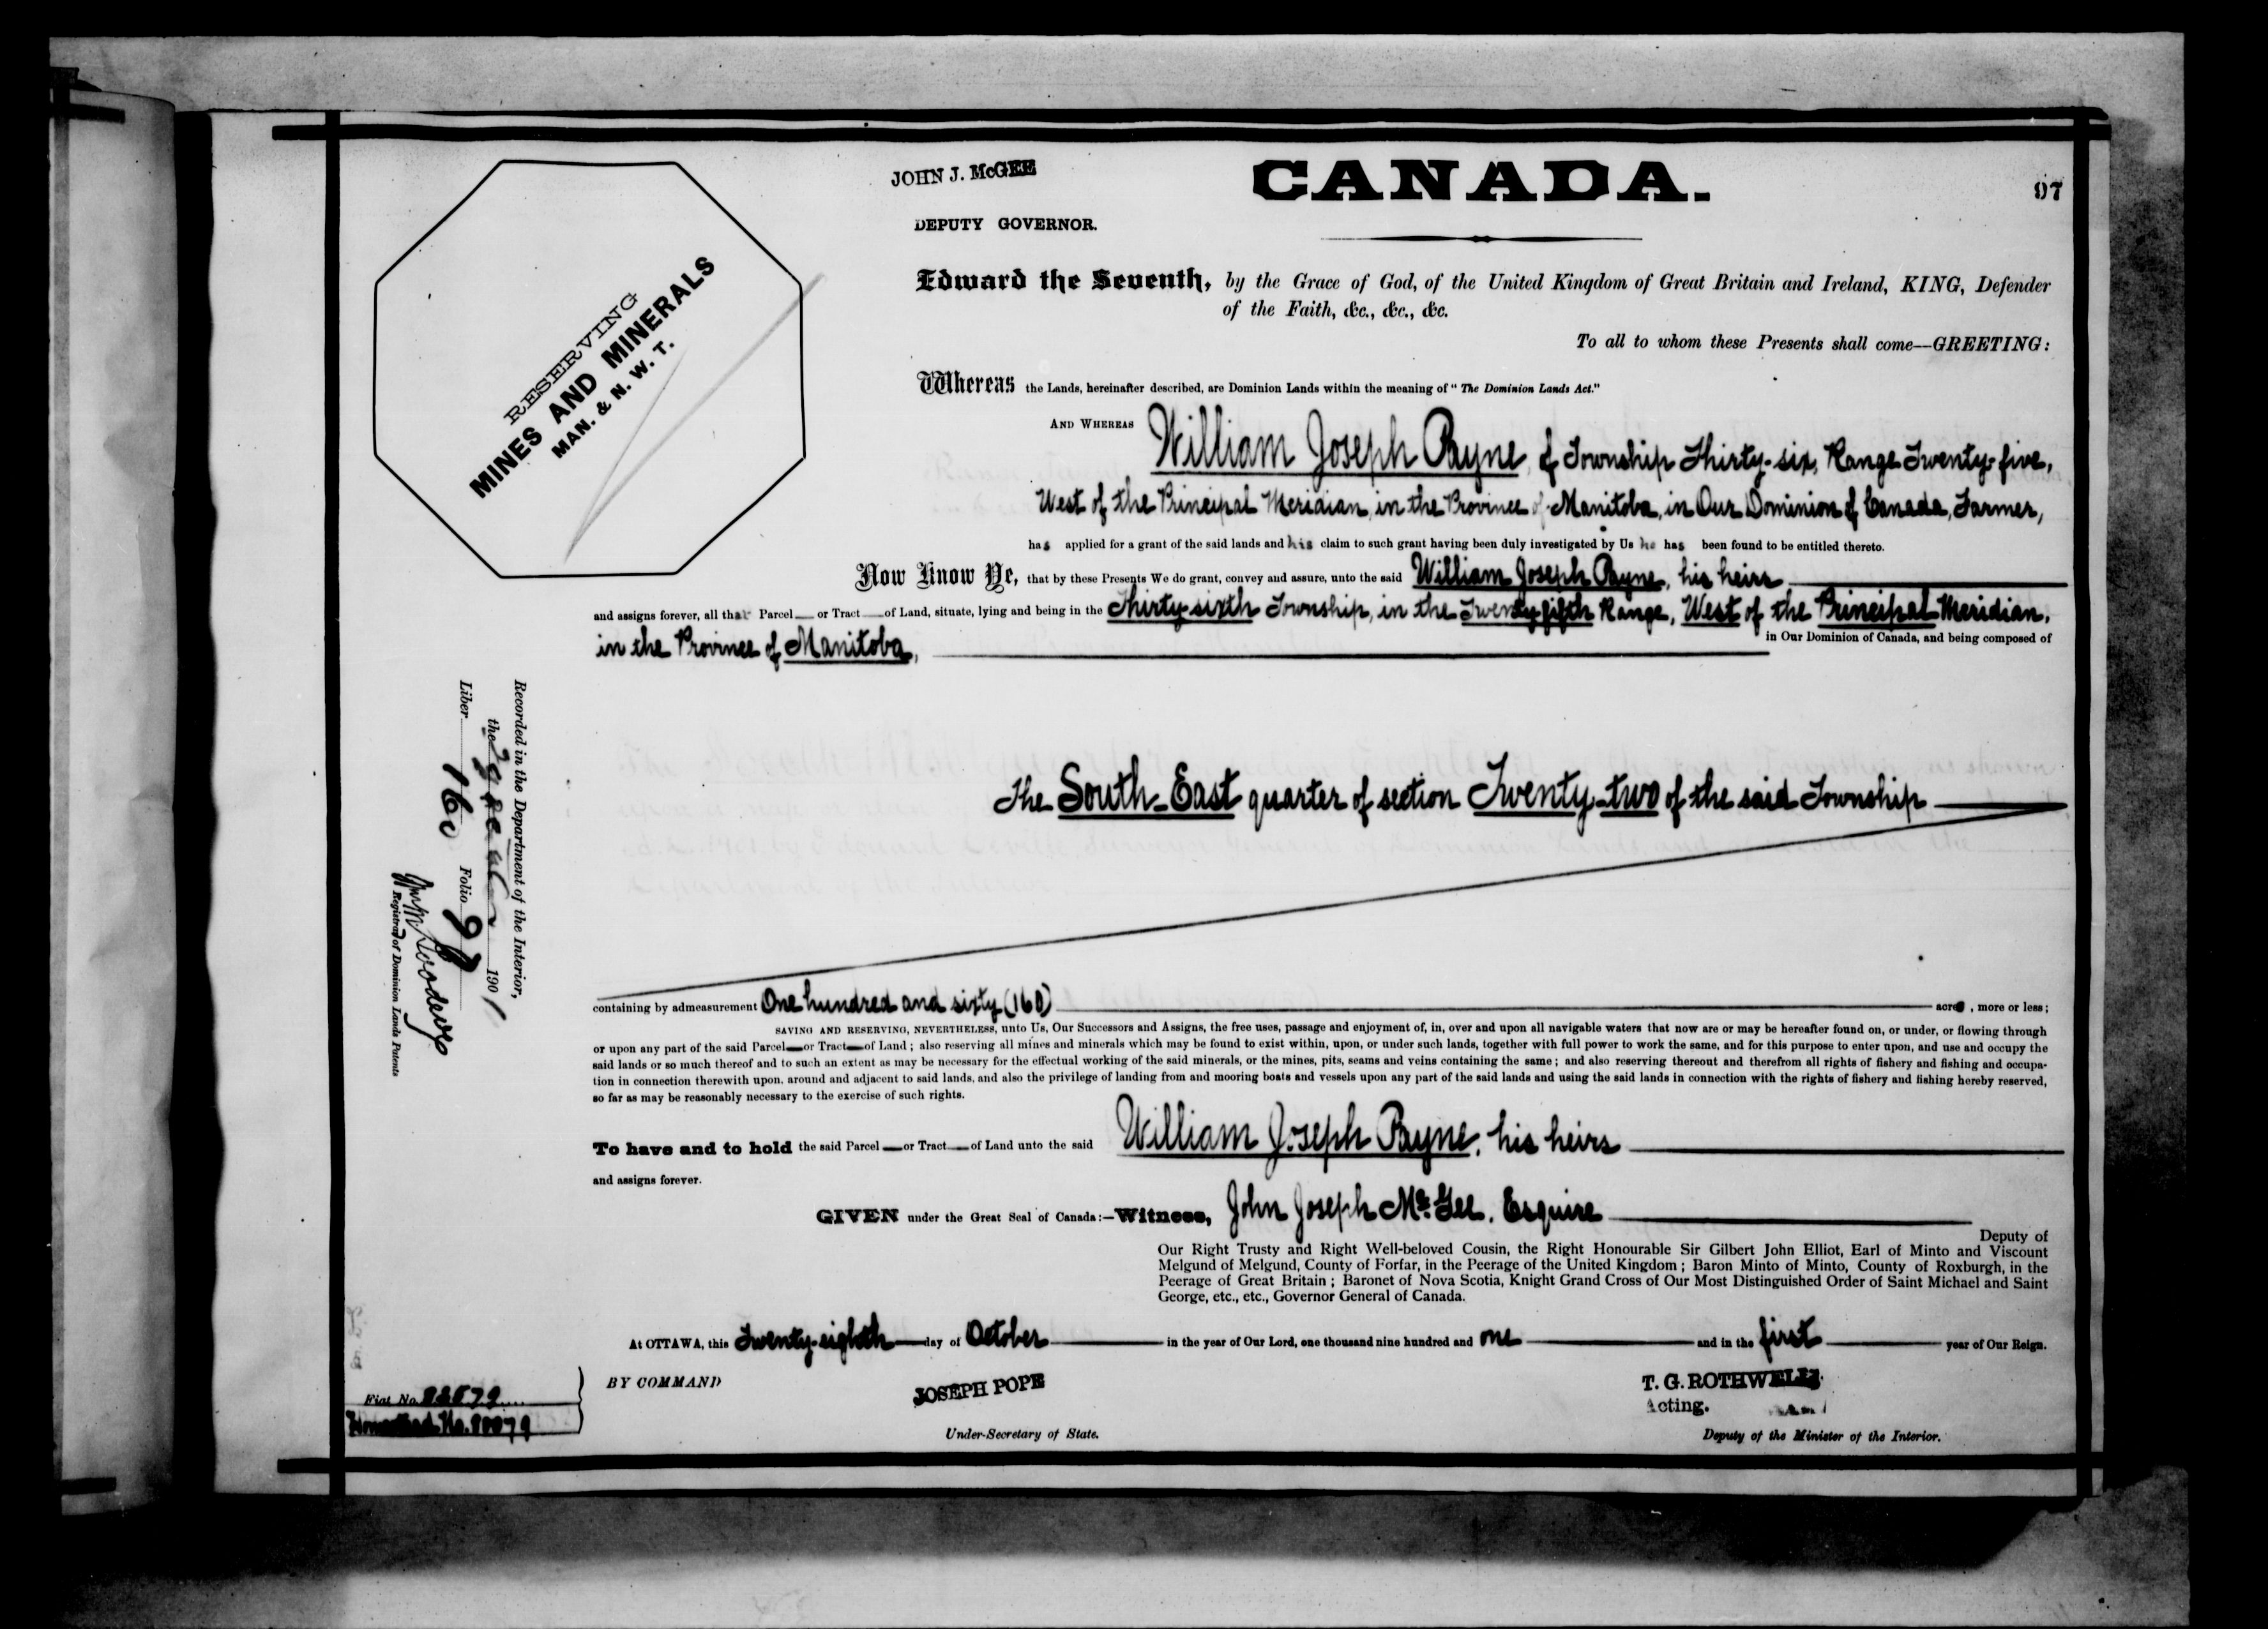 JOHN J. McGEE
DEPUTY GOVERNOR.
CANADA.
97
RESERVING
MINES AND MINERALS
MAN. & N. W. T.
Edward the Seventh, by the Grace of God, of the United Kingdom of Great Britain and Ireland, KING, Defender
of the Faith, &c., &c., &c.
To all to whom these Presents shall come—GREETING:
Whereas the Lands, hereinafter described, are Dominion Lands within the meaning of "The Dominion Lands Act."
AND WHEREAS William Joseph Payne, of Township Thirty-six, Range Twenty-five,
West of the Principal Meridian, in the Province of Manitoba, in Our Dominion of Canada, Farmer,
has applied for a grant of the said lands and his claim to such grant having been duly investigated by Us he has been found to be entitled thereto.
Now Know Ye, that by these Presents We do grant, convey and assure, unto the said William Joseph Payne, his heirs
and assigns forever, all that Parcel or Tract of Land, situate, lying and being in the Thirty-sixth Township, in the Twenty-fifth Range, West of the Principal Meridian,
in the Province of Manitoba,
in Our Dominion of Canada, and being composed of
The South-East quarter of section Twenty-two of the said Township
Recorded in the Department of the Interior,
the 1901
Liber 160 Folio 97
Registrar of Dominion Lands Patents
containing by admeasurement One hundred and sixty (160) acres, more or less;
SAVING AND RESERVING, NEVERTHELESS, unto Us, Our Successors and Assigns, the free uses, passage and enjoyment of, in, over and upon all navigable waters that now are or may be hereafter found on, or under, or flowing through
or upon any part of the said Parcel or Tract of Land; also reserving all mines and minerals which may be found to exist within, upon, or under such lands, together with full power to work the same, and for this purpose to enter upon, and use and occupy the
said lands or so much thereof and to such an extent as may be necessary for the effectual working of the said minerals, or the mines, pits, seams and veins containing the same; and also reserving thereout and therefrom all rights of fishery and fishing and occupa-
tion in connection therewith upon, around and adjacent to said lands, and also the privilege of landing from and mooring boats and vessels upon any part of the said lands and using the said lands in connection with the rights of fishery and fishing hereby reserved,
so far as may be reasonably necessary to the exercise of such rights.
To have and to hold the said Parcel or Tract of Land unto the said William Joseph Payne, his heirs
and assigns forever.
GIVEN under the Great Seal of Canada:—Witness, John Joseph McGee, Esquire
Deputy of
Our Right Trusty and Right Well-beloved Cousin, the Right Honourable Sir Gilbert John Elliot, Earl of Minto and Viscount
Melgund of Melgund, County of Forfar, in the Peerage of the United Kingdom; Baron Minto of Minto, County of Roxburgh, in the
Peerage of Great Britain; Baronet of Nova Scotia, Knight Grand Cross of Our Most Distinguished Order of Saint Michael and Saint
George, etc., etc., Governor General of Canada.
At OTTAWA, this Twenty-eighth day of October in the year of Our Lord, one thousand nine hundred and one and in the first year of Our Reign.
BY COMMAND
JOSEPH POPE
Under-Secretary of State.
T. G. ROTHWELL
Acting.
Deputy of the Minister of the Interior.
Fiat No.
Homestead No.